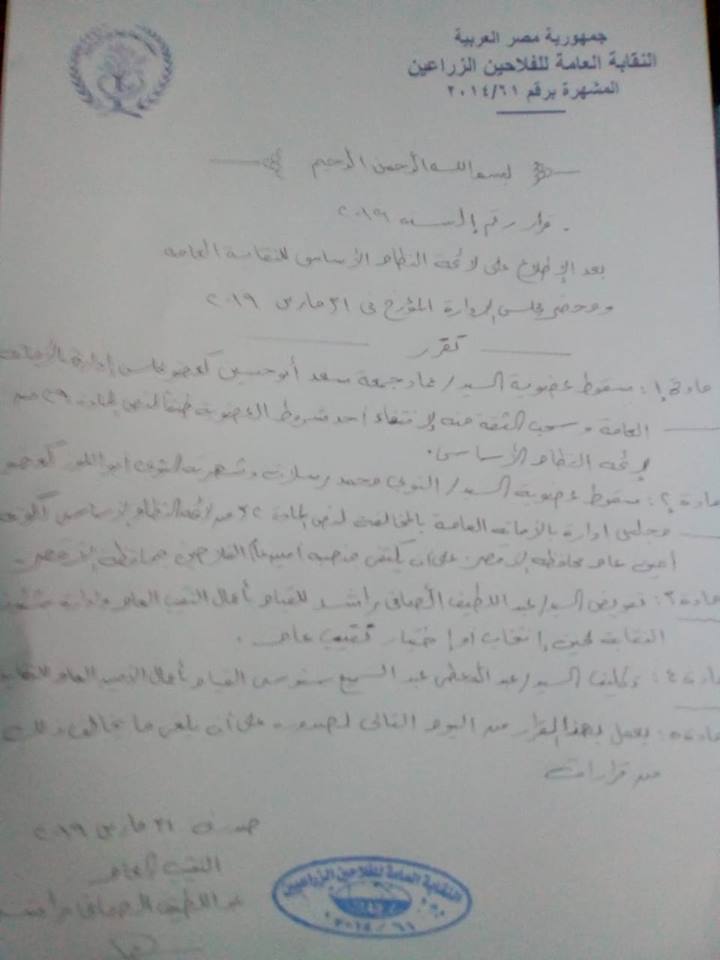 جمهورية مصر العربية
النقابة العامة للفلاحين الزراعين
المشهرة برقم ٢٠١٤/٦١
بسم الله الرحمن الرحيم
قرار رقم ١ لسنه ٢٠١٩
بعد الإطلاع على لائحة النظام الأساسى للنقابة العامه
ومحضر مجلس إدارة المؤرخ فى ٢١ مارس ٢٠١٩
تقرر
مادة ١: سقوط عضوية السيد / عماد جمعة سعد أبو حسين كعضو مجلس إدارة
العامة وسحب الثقة منه لإنتفاء أحد شروط العضوية طبقا لنص المادة ٢٩ من
لائحة النظام الأساسى.
مادة ٢: سقوط عضوية السيد / النوبى محمد رسلان وشهرته النوبى ابو اللوز كعضو
مجلس ادارة بالأمانه العامة بالمخالفة لنص المادة من لائحة النظام الأساسى
أمين عام محافظة الاقصر على أن يكتفى منصبه أمينا الفلاحين محافظة الاقصر.
مادة ٣: تفويض السيد / عبد اللطيف راشد للقيام بأعمال النقيب العام وإدارة شئون
النقابة لحين إنتخاب أو إختيار نقيب عام.
مادة ٤: تكليف السيد / عبد المعطى عبد السميع القيام بأعمال العام للنقابة
مادة ٥: يعمل بهذا القرار من اليوم التالى لصدوره على أن يلغى ما يخالف ذلك
من قرارات
صدر فى ٢١ مارس ٢٠١٩
النقيب العام
عبد اللطيف راشد
النقابة العامة للفلاحين الزراعيين
٢٠١٤/٦١